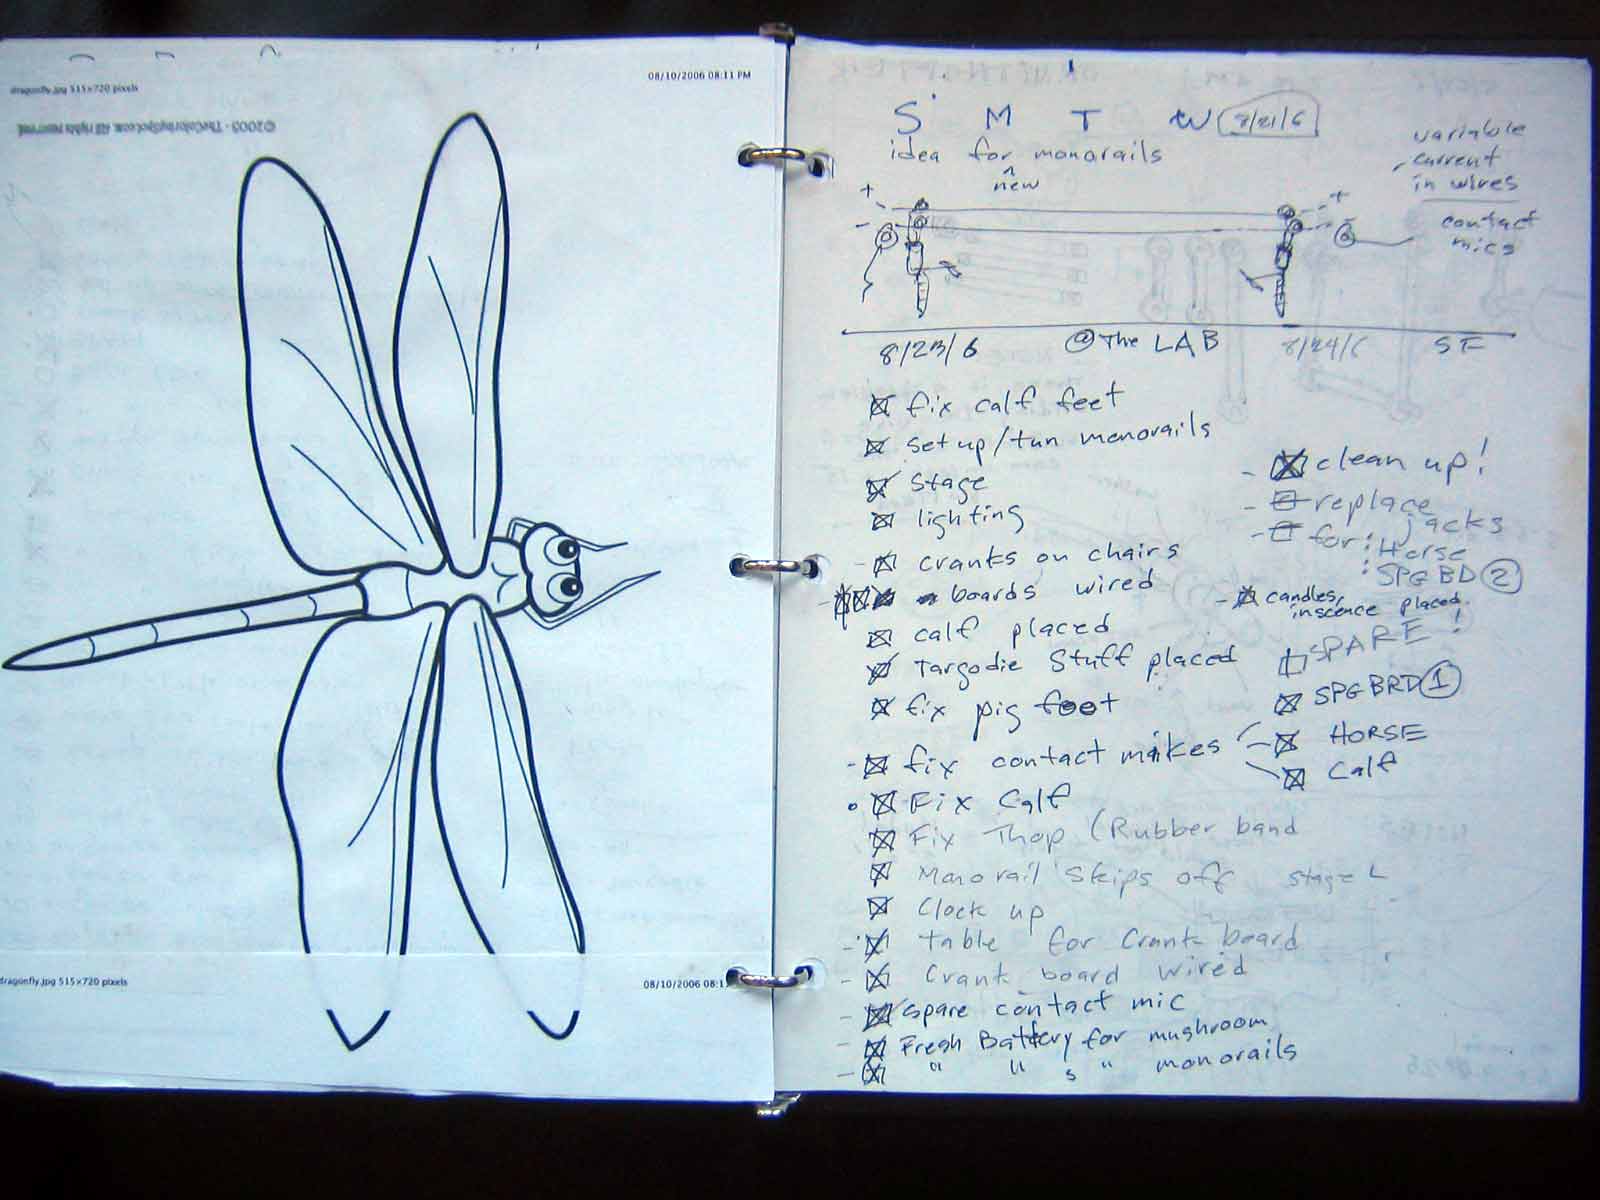 dragonfly.jpg 515×720 pixels
08/10/2006 08:11 PM
©2005 - TheColoringSpot.com. All rights reserved.
dragonfly.jpg 515×720 pixels
08/10/2006 08:1
S M T W 8/21/6
idea for monorails
new
variable
current
in wires
contact
mics
+ - + -
8/23/6 @ The LAB 8/24/6 SF
fix calf feet
set up/tun monorails
stage
lighting
cranks on chairs
boards wired
calf placed
Targodie Stuff placed
fix pig foot
fix contact mikes
Fix Calf
Fix Thop (Rubber band
Monorail skips off stage L
Clock up
table for Crank board
Crank board wired
spare contact mic
Fresh Battery for mushroom
" " s " monorails
clean up!
replace
jacks
for: Horse
: SPGBD 2
candles,
inscence placed.
SPARE!
SPGBRD 1
HORSE
Calf